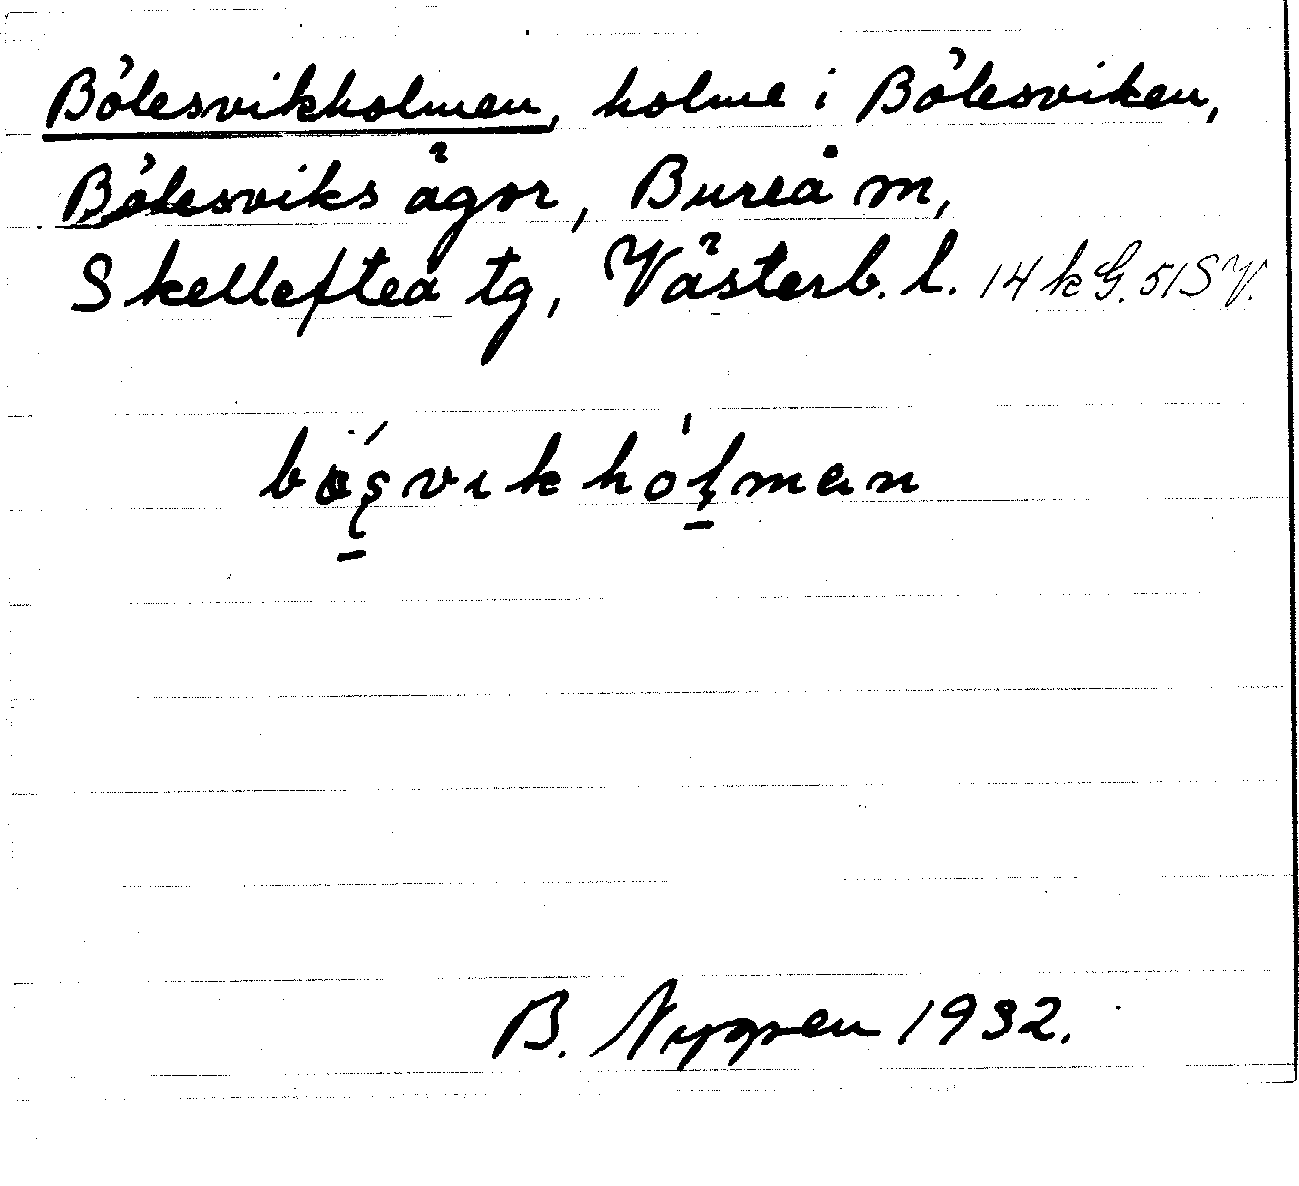 Bölesvikholmen, holme i Bölesviken,
Bölesviks ägor, Bureå m,
Skellefteå tg, Västerb. l. 14 k G. 51 SV.
B. Nygren 1932.